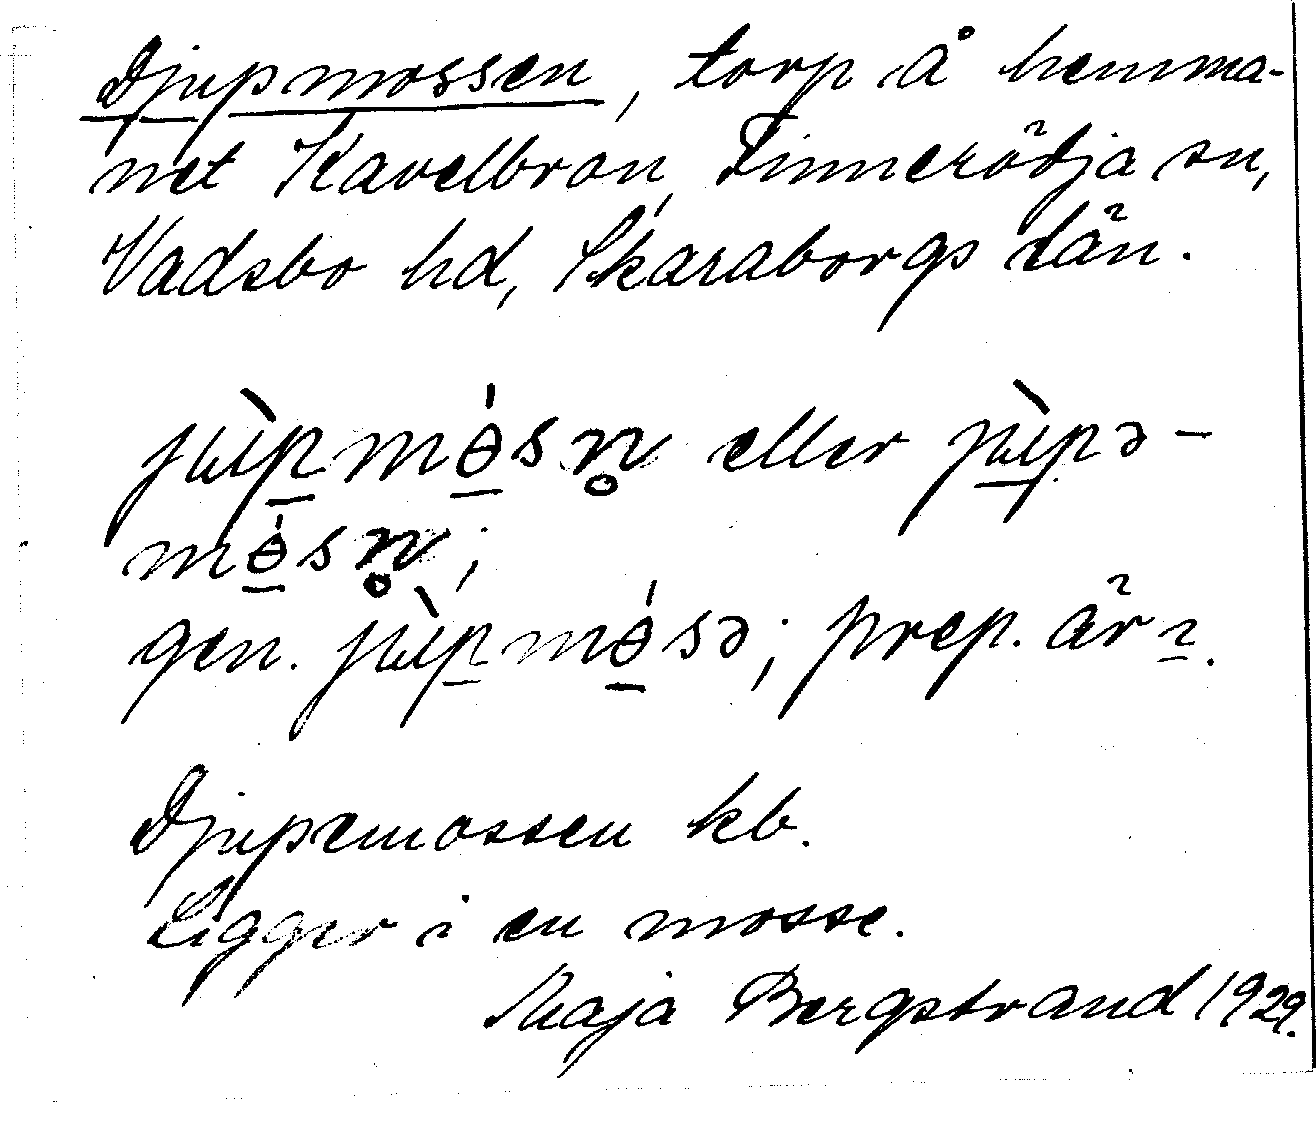 Djupmossen, torp å hemma-
net Kavelbron, Finnerödja sn,
Vadsbo hd, Skaraborgs län.
jùpmɵ́sn̥ eller jùpə-
mɵ́sn̥;
gen. jùpmɵ́sə; prep. är ɩ.
Djupemossen kb.
Ligger i en mosse.
Maja Bergstrand 1929.